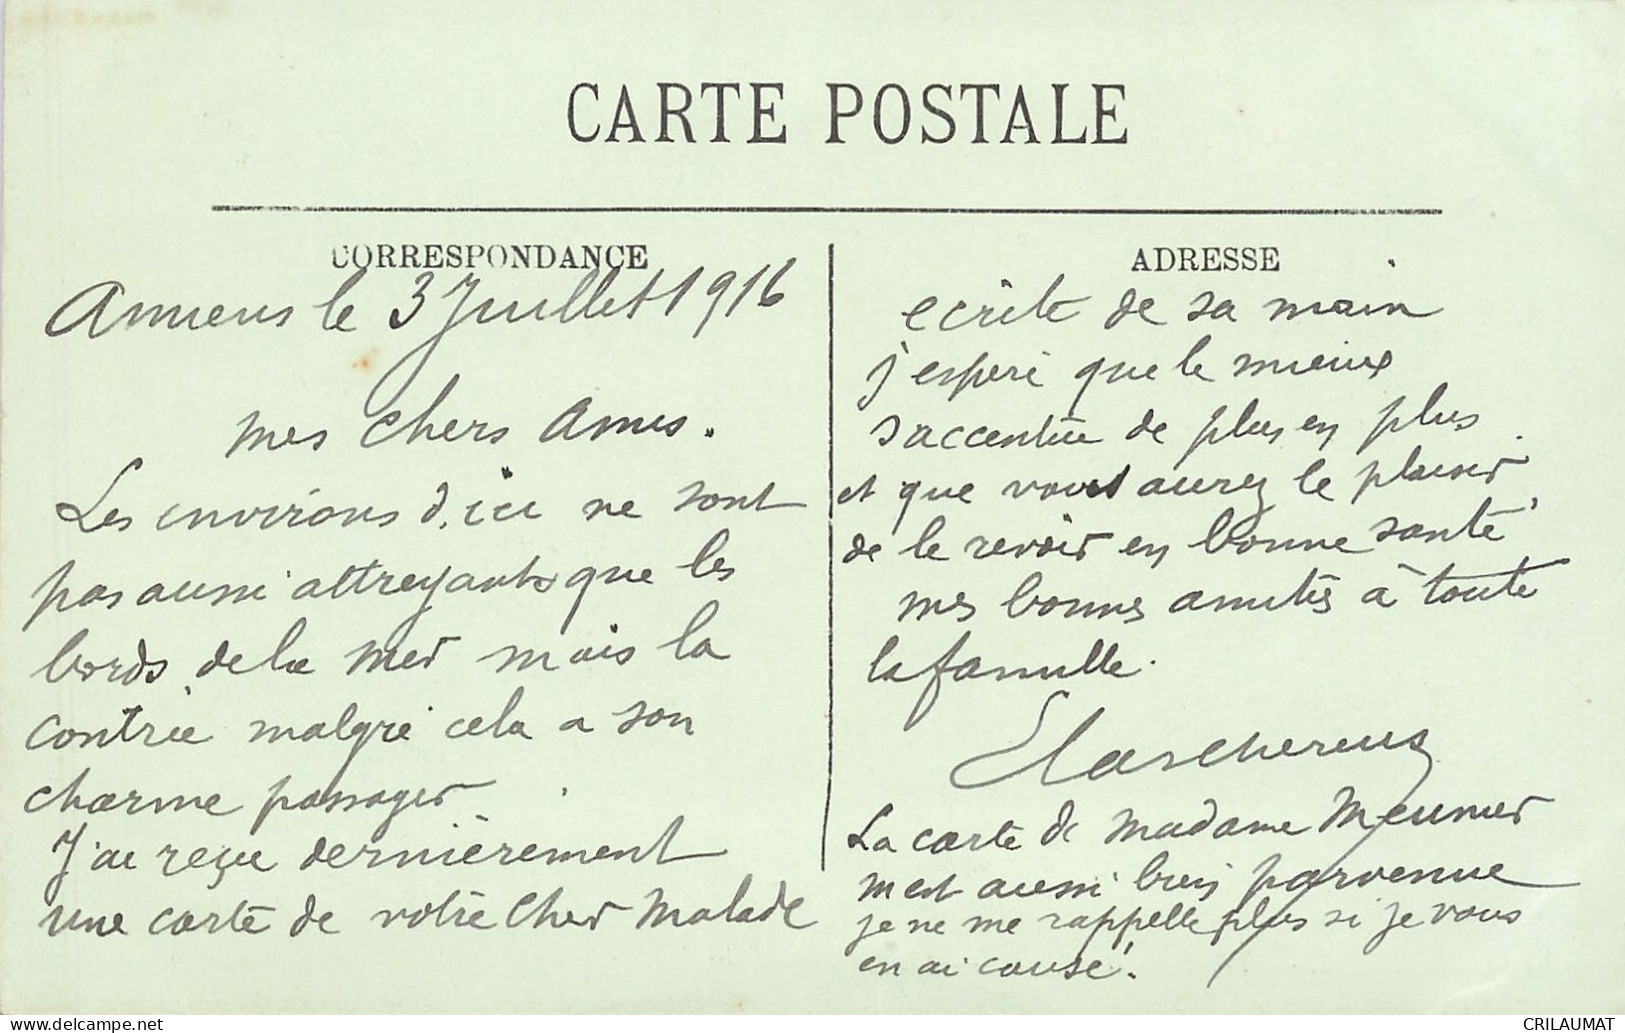 CARTE POSTALE
CORRESPONDANCE
Amiens le 3 Juillet 1916
mes chers Amis.
Les environs d'ici ne sont
pas aussi attreyants que les
bords de la mer mais la
contrée malgré cela a son
charme passager
J'ai reçu dernièrement
une carte de votre cher malade
ADRESSE
ecrite de sa main
j'espere que le mieux
s'accentue de plus en plus
et que vous aurez le plaisir
de le revoir en bonne santé
mes bonnes amitiés à toute
la famille.
La carte de Madame Meunier
m'est aussi bien parvenue
je ne me rappelle plus si je vous
en ai causé.
CRILAUMAT